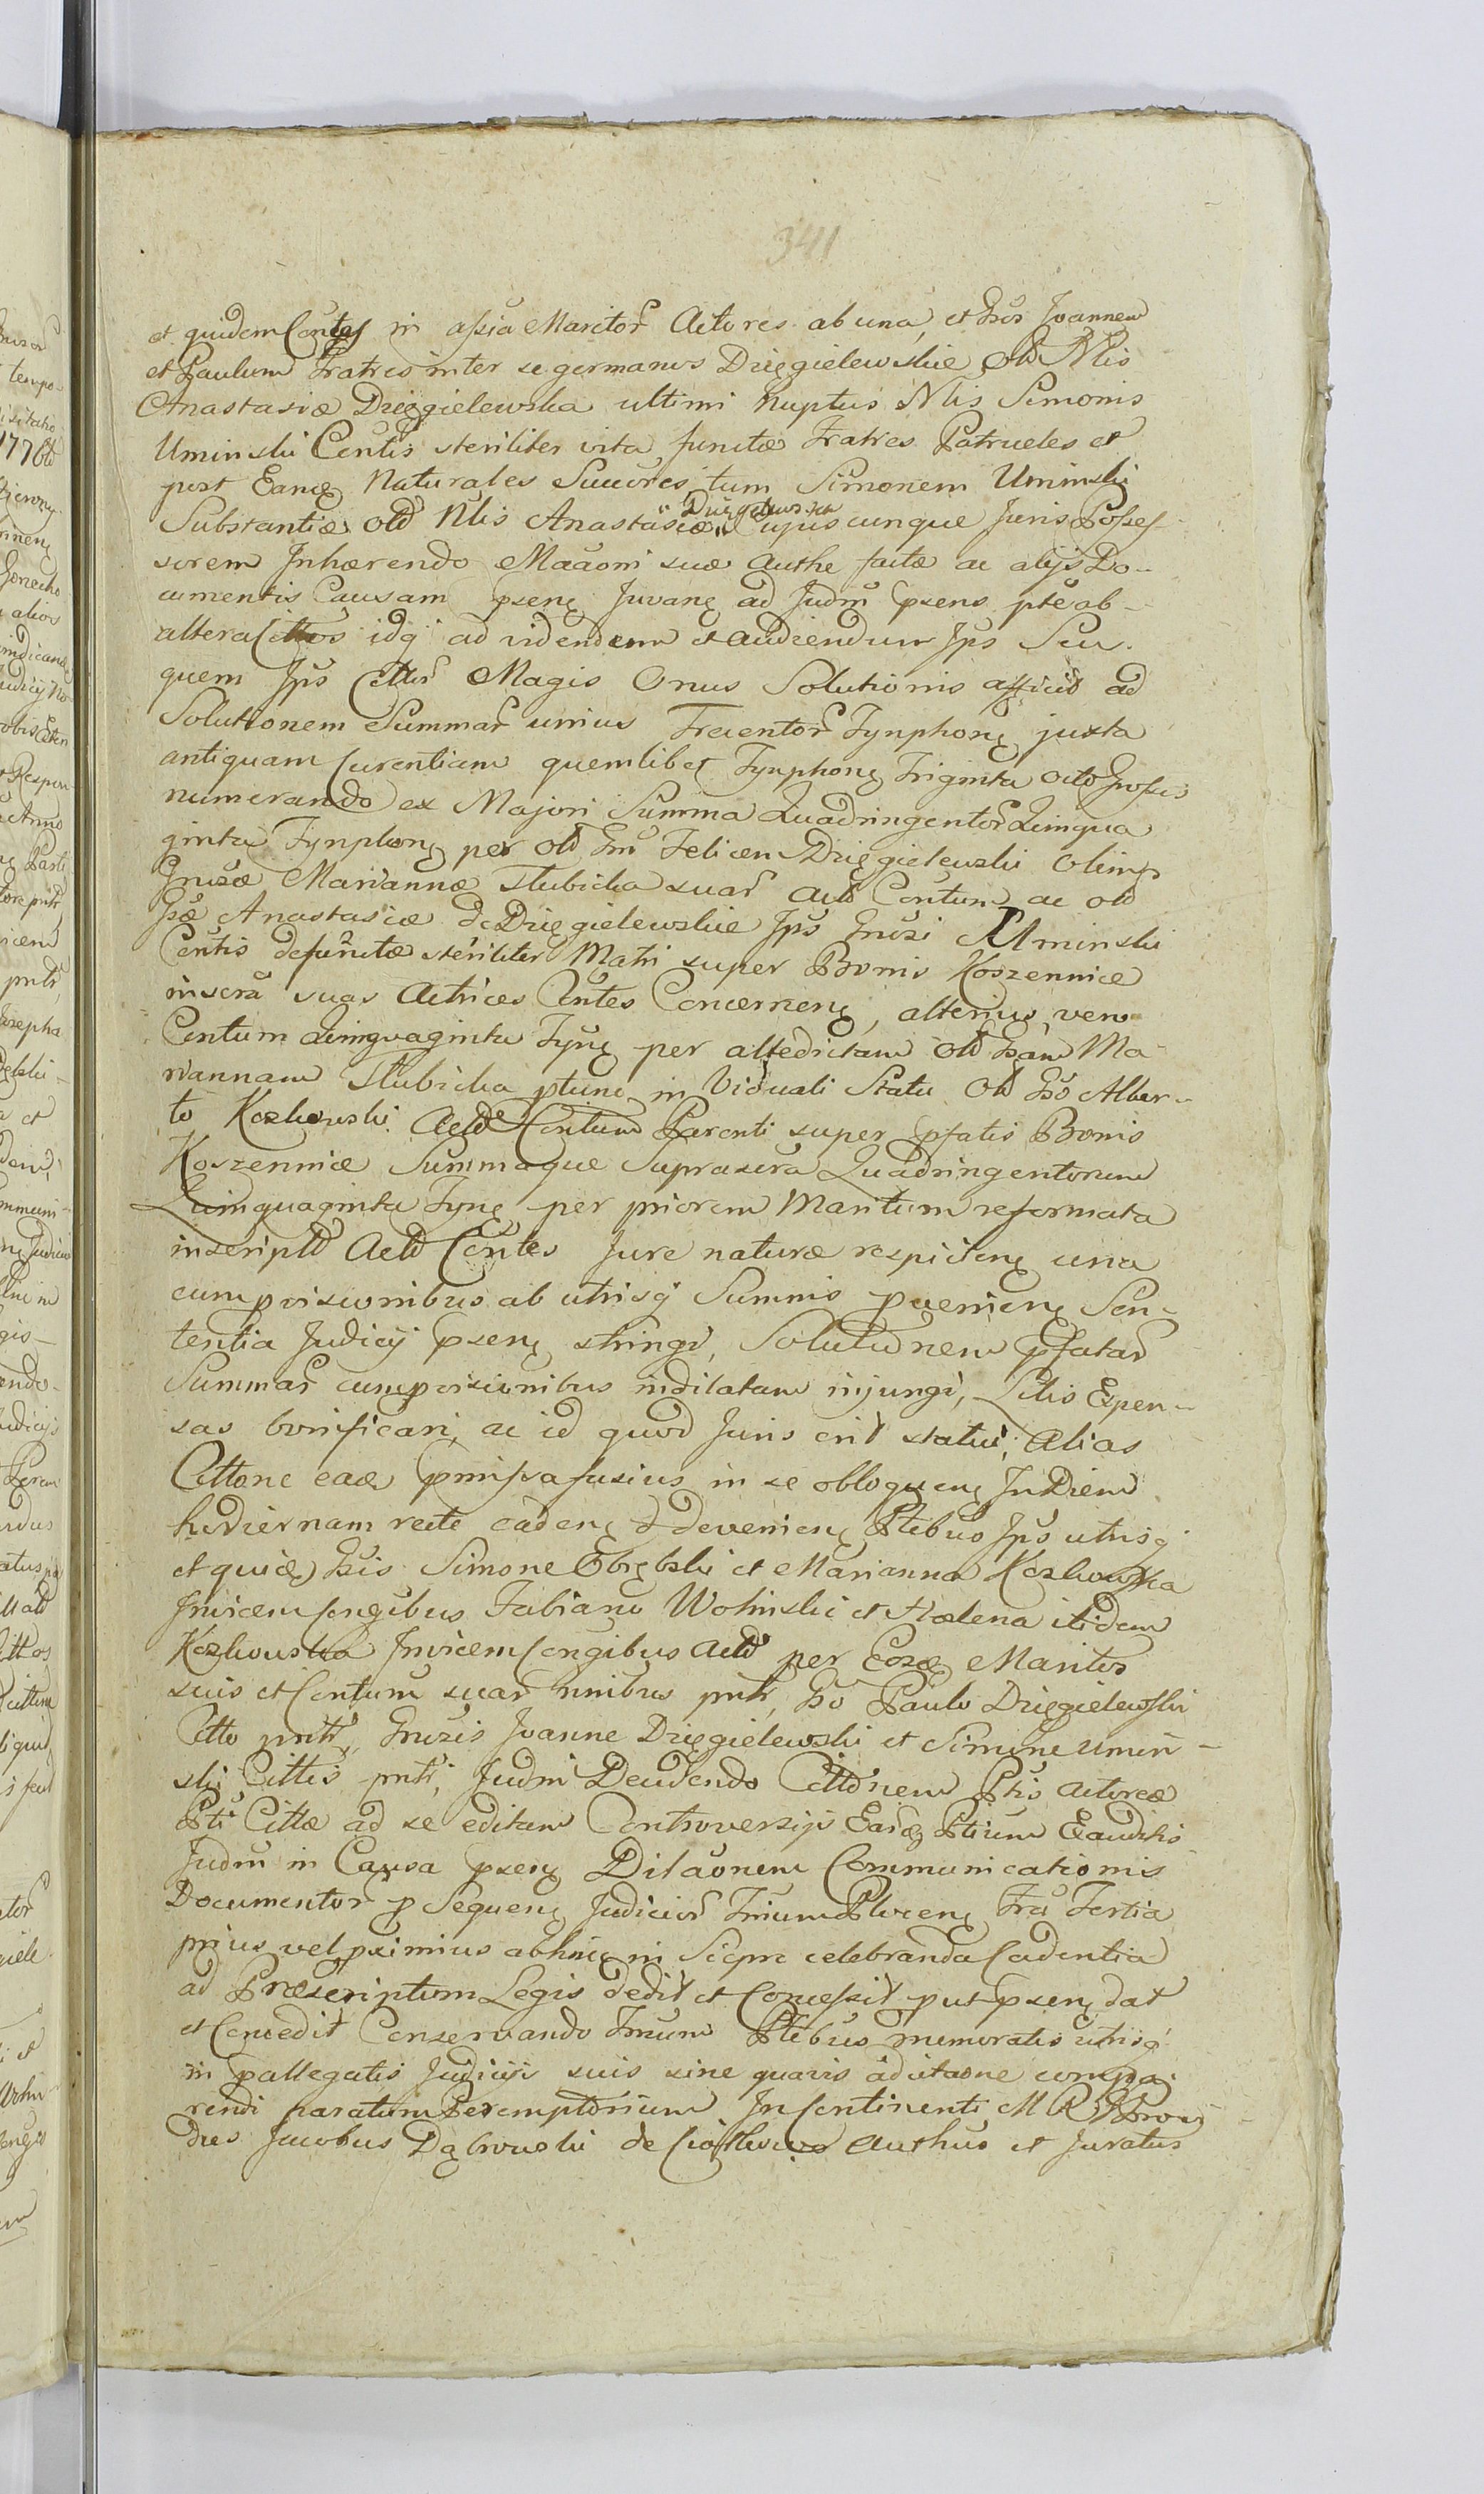 341
et quidem Contes in assia Maritor Actores ab una, et Gsos Joannem
et Paulum Fratres inter se germanos Dzięgielewskie Old Nlis
Anastasiæ Dzięgielewska ultimi Nuptus Nlis Simonis
Uminski Contis steriliter vita functæ Fratres Patrueles et
post Eamq Naturales Succores, tum Simonem Uminski
Substantiæ Old Nlis Anastasiæ Dzięgielewska Cujuscunque Juris Posses
sorem Inhærendo Maaoni suæ Authe factæ ac alijs Do-
cumentis Causam psenq Juvanq ad Judm psens pte ab-
altera Cittos idq ad videndum et audiendum Jps Seu
quem Jps Cttur Magis Onus Solutionis afficit ad
Solutionem Summar unius Trecentor Tynphonq juxta
antiquam Curentiam quemlibet Tynphonq Triginta octo Grossis
numerando ex Majori Summa Quadringentor Quinqua
ginta Tynphonq per Old Gm Felicem Dzięgielewski Olim
Gnusæ Mariannæ Slubicka suar Actt Contum ac Old
Gsæ Anastasiæ de Dzięgielewskie Jps Gnusi Uminski
Contis defunctæ steriliter Matri super Bonis Koszennice
inscra suas Actrices Contes Concernenq, alterius vero
Centum Quinquaginta Tynq per altedictam Old Gsam Ma-
riannam Slubicka ptunc in Viduali Statu Old Gso Alber-
to Kozlowski Actt Contum Parenti super pfatis Bonis
Koszennice Summaque Suprascra Quadringentorum
Quinquaginta Tynq per priorem Maritum reformata
inscripto Actt Contes Jure naturæ respicienq una
cum provisionibus ab utrisq Summis provenienq Sen-
tentia Judicij psenq stringi, Solutionem pfatar
Summar cum provisionibus indilatam injungi, Litis Expen-
sas bonificari, ac id quod Juris erit statui, Alias
Cittone eaq pmissa fusius in se obloquenq In Diem
hodiernam recte cadenq & devenienq Ptebus Jps utrisq
et quidq Gsis Simone Obrębski et Marianna Kozlowska
Invicem Congibus Fabiano Wolinski et Helena itidem
Kozlowska Invicem Congibus Actt per Eosq Maritos
suis et Contum suar nnibus pntr, Gso Paulo Dzięgielewski
Citto pntr, Gnusis Joanne Dzięgielewski et Simone Umin-
ski Cittis pntr, Judm Deudendo Cittonem Ptis Actoreæ
Pti Cittæ ad se editam Controversijs Earq Ptium Exauditis
Judm in Causa psenq Dilaonem Communicationis
Documentor p Sequenq Judicior Trium Plocenq Fra Tertia
prius vel pximius abhinc in Sicpre celebranda Cadentia
ad Præscriptum Legis dedit et Concessit put psenq dat
et Concedit Conservando Tmum Ptebus memoratis utrisq
in pallegatis Judicijs suis sine quavis adcitaone compa-
rendi paratum Peremptorium In Continenti M R
dus Jacobus Dąbrowski de Authus et Juratus